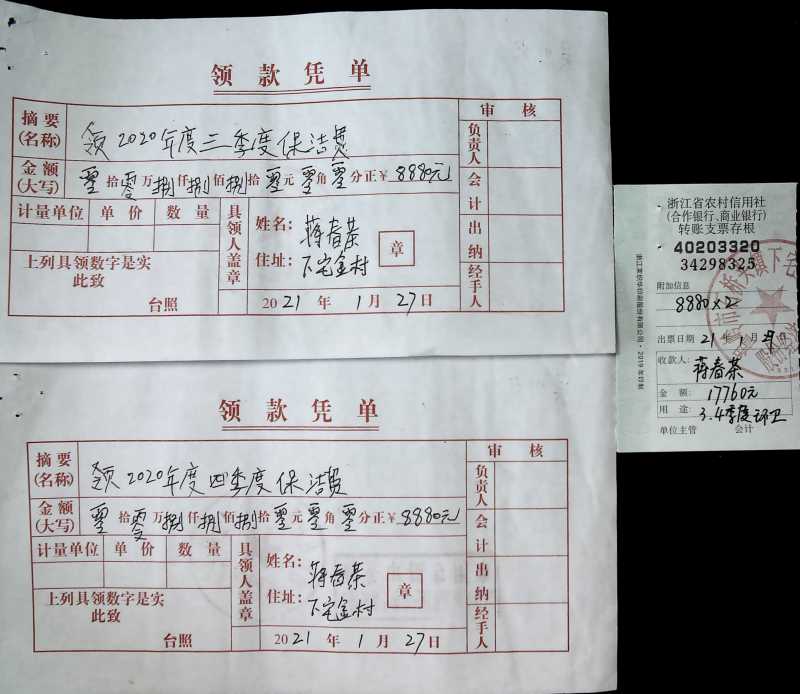 领款凭单
摘要(名称) 领2020年度三季度保洁费
审核
金额(大写) 零拾零万捌仟捌佰捌拾零元零角零分正¥8880元
负责人
计量单位 单价 数量
具领人盖章
姓名：蒋春荣
会计
住址：下宅金村
章
出纳
上列具领数字是实
此致
台照
2021年1月27日
经手人
领款凭单
摘要(名称) 领2020年度四季度保洁费
审核
金额(大写) 零拾零万捌仟捌佰捌拾零元零角零分正¥8880元
负责人
计量单位 单价 数量
具领人盖章
姓名：蒋春荣
会计
住址：下宅金村
章
出纳
上列具领数字是实
此致
台照
2021年1月27日
经手人
浙江省农村信用社
(合作银行、商业银行)
转账支票存根
40203320
34298325
附加信息
8880×2
出票日期 21年1月27日
收款人：蒋春荣
金额：17760元
用途：3.4季度环卫
单位主管 会计